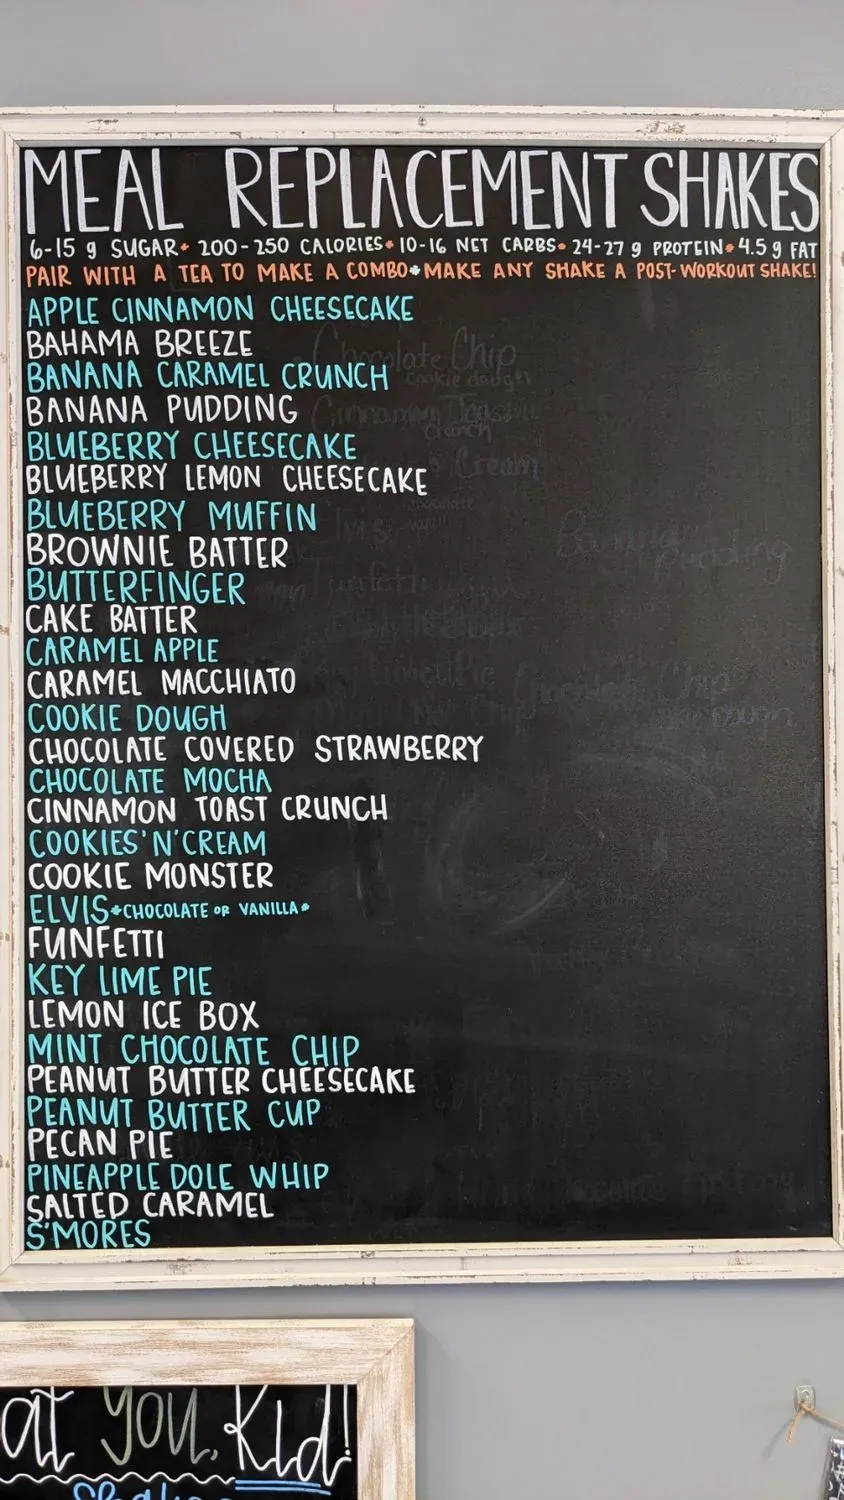 MEAL REPLACEMENT SHAKES
6-15 g SUGAR • 200-250 CALORIES • 10-16 NET CARBS • 24-27 g PROTEIN • 4.5 g FAT
PAIR WITH A TEA TO MAKE A COMBO • MAKE ANY SHAKE A POST-WORKOUT SHAKE!
APPLE CINNAMON CHEESECAKE
BAHAMA BREEZE
BANANA CARAMEL CRUNCH
BANANA PUDDING
BLUEBERRY CHEESECAKE
BLUEBERRY LEMON CHEESECAKE
BLUEBERRY MUFFIN
BROWNIE BATTER
BUTTERFINGER
CAKE BATTER
CARAMEL APPLE
CARAMEL MACCHIATO
COOKIE DOUGH
CHOCOLATE COVERED STRAWBERRY
CHOCOLATE MOCHA
CINNAMON TOAST CRUNCH
COOKIES'N'CREAM
COOKIE MONSTER
ELVIS *CHOCOLATE OR VANILLA*
FUNFETTI
KEY LIME PIE
LEMON ICE BOX
MINT CHOCOLATE CHIP
PEANUT BUTTER CHEESECAKE
PEANUT BUTTER CUP
PECAN PIE
PINEAPPLE DOLE WHIP
SALTED CARAMEL
S'MORES
Chocolate Chip
cookie dough
Cream
Banana
Pudding
at you, Kid!